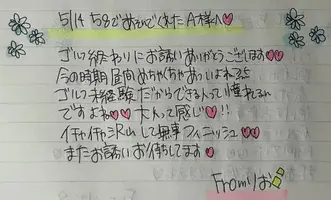 5/14 58であそんでくれたA様へ♡
ゴルフ終わりにお誘いありがとうございます♡♡
今の時期昼間めちゃめちゃあついよね
ゴルフ未経験だからできる人って憧れるん
ですよね♡♡大人って感じ♡!!
イチャイチャ して無事フィニッシュ♡♡
またお誘いお待ちしてます♡
Fromりお